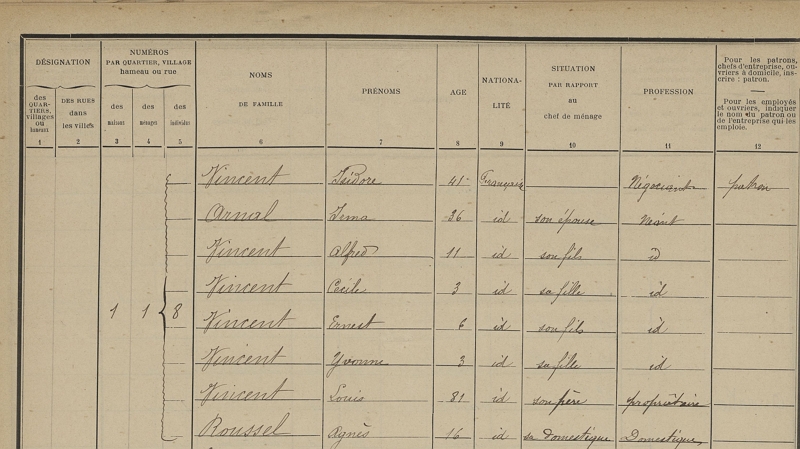 DÉSIGNATION
NUMÉROS
PAR QUARTIER, VILLAGE
hameau ou rue
NOMS
DE FAMILLE
PRÉNOMS
AGE
NATIONA-
LITÉ
SITUATION
PAR RAPPORT
au
chef de ménage
PROFESSION
Pour les patrons,
chefs d'entreprise, ou-
vriers à domicile, ins-
crire : patron.
Pour les employés
et ouvriers, indiquer
le nom du patron ou
de l'entreprise qui les
emploie.
des
QUAR-
TIERS,
villages
ou
hameaux
DES RUES
dans
les villes
des
maisons
des
ménages
des
individus
1 2 3 4 5 6 7 8 9 10 11 12
Vincent Isidore 41 Française Négociant patron
Arnal Irma 36 id son épouse Néant
Vincent Alfred 11 id son fils id
Vincent Cecile 3 id sa fille id
1 1 8
Vincent Ernest 6 id son fils id
Vincent Yvonne 3 id sa fille id
Vincent Louis 81 id son père propriétaire
Roussel Agnès 16 id sa domestique Domestique